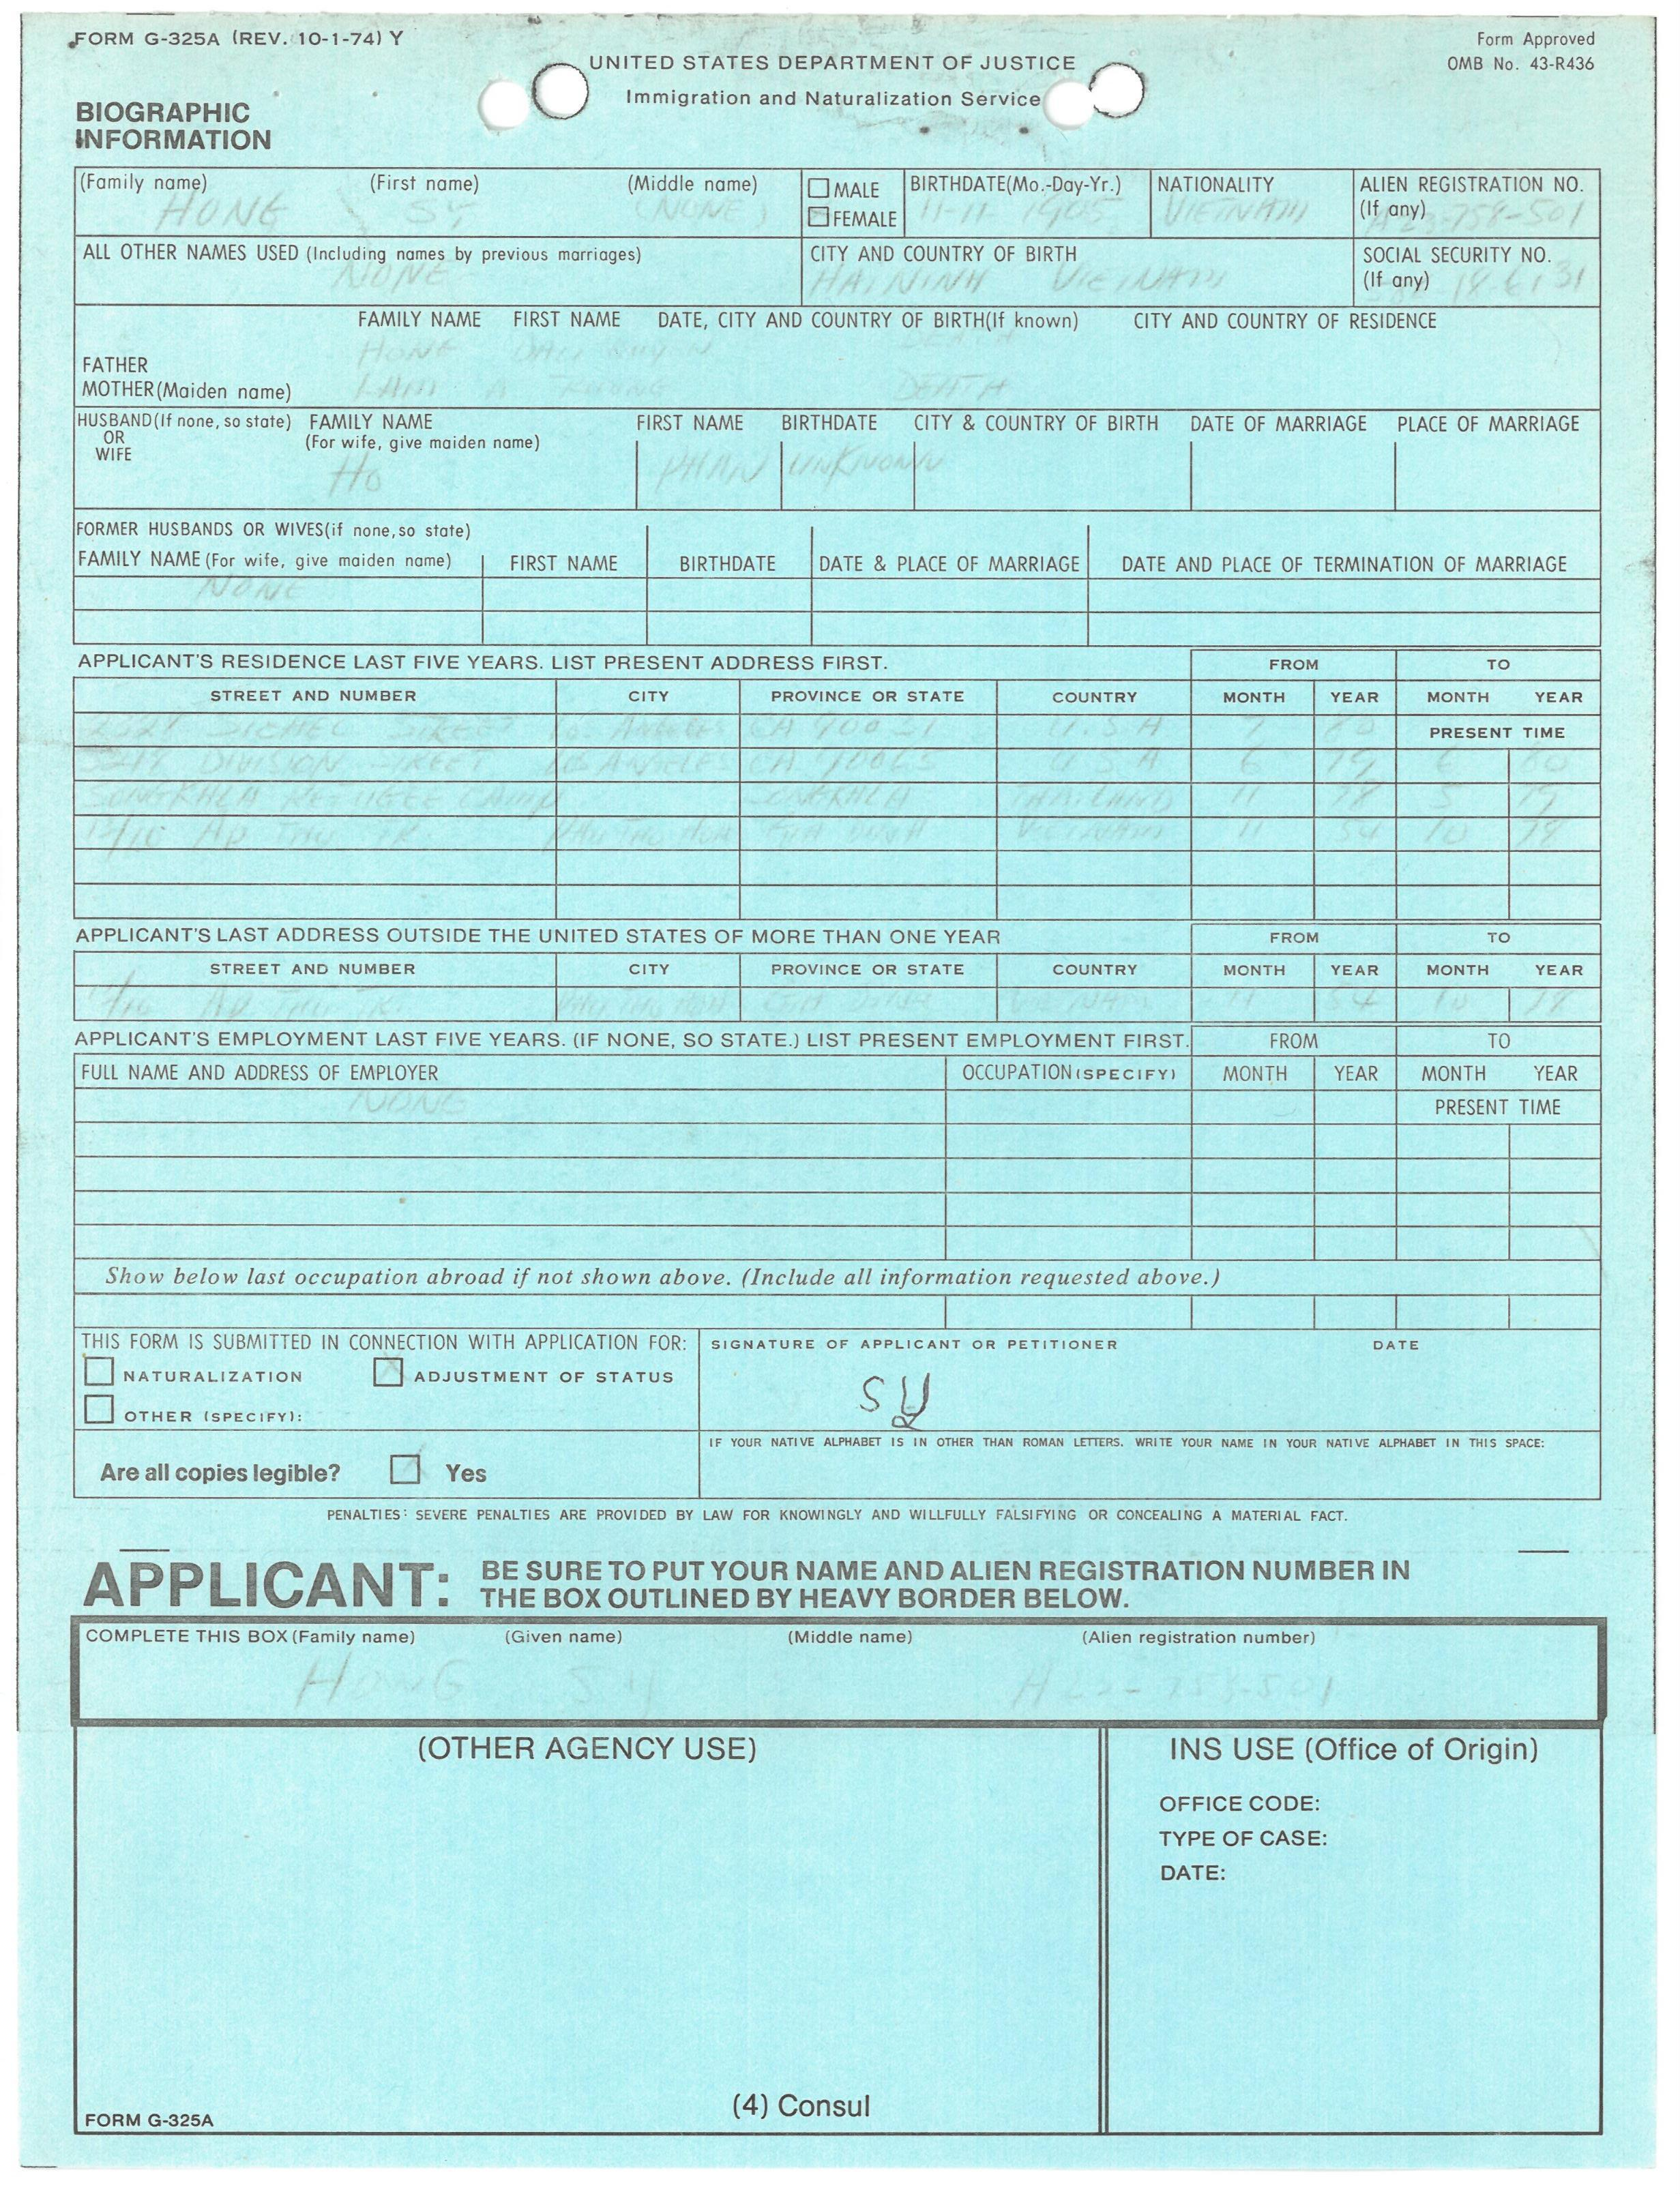 FORM G-325A (REV. 10-1-74) Y
Form Approved
OMB No. 43-R436
UNITED STATES DEPARTMENT OF JUSTICE
Immigration and Naturalization Service
BIOGRAPHIC
INFORMATION
(Family name) (First name) (Middle name) MALE BIRTHDATE(Mo.-Day-Yr.) NATIONALITY ALIEN REGISTRATION NO.
(If any)
HONG SY (NONE) FEMALE 11-11 1905 VIETNAM
ALL OTHER NAMES USED (Including names by previous marriages) CITY AND COUNTRY OF BIRTH SOCIAL SECURITY NO.
(If any)
NONE HAININH VIETNAM
FAMILY NAME FIRST NAME DATE, CITY AND COUNTRY OF BIRTH(If known) CITY AND COUNTRY OF RESIDENCE
FATHER HONG DEATH
MOTHER(Maiden name) LAM A DEATH
HUSBAND(If none, so state) FAMILY NAME FIRST NAME BIRTHDATE CITY & COUNTRY OF BIRTH DATE OF MARRIAGE PLACE OF MARRIAGE
OR (For wife, give maiden name)
WIFE
HO PHAN UNKNOWN
FORMER HUSBANDS OR WIVES(if none,so state)
FAMILY NAME (For wife, give maiden name) FIRST NAME BIRTHDATE DATE & PLACE OF MARRIAGE DATE AND PLACE OF TERMINATION OF MARRIAGE
NONE
APPLICANT'S RESIDENCE LAST FIVE YEARS. LIST PRESENT ADDRESS FIRST. FROM TO
STREET AND NUMBER CITY PROVINCE OR STATE COUNTRY MONTH YEAR MONTH YEAR
SICHEL STREET LOS ANGELES CA 90031 U.S.A 7 80 PRESENT TIME
DIVISION STREET LOS ANGELES CA 90065 U.S.A 6 79 6 80
SONGKHLA REFUGEE CAMP SONGKHLA THAILAND 11 78 5 79
GIA DINH VIETNAM 11 54 10 78
APPLICANT'S LAST ADDRESS OUTSIDE THE UNITED STATES OF MORE THAN ONE YEAR FROM TO
STREET AND NUMBER CITY PROVINCE OR STATE COUNTRY MONTH YEAR MONTH YEAR
GIA DINH VIETNAM 11 54 10 78
APPLICANT'S EMPLOYMENT LAST FIVE YEARS. (IF NONE, SO STATE.) LIST PRESENT EMPLOYMENT FIRST. FROM TO
FULL NAME AND ADDRESS OF EMPLOYER OCCUPATION (SPECIFY) MONTH YEAR MONTH YEAR
NONE PRESENT TIME
Show below last occupation abroad if not shown above. (Include all information requested above.)
THIS FORM IS SUBMITTED IN CONNECTION WITH APPLICATION FOR: SIGNATURE OF APPLICANT OR PETITIONER DATE
NATURALIZATION ADJUSTMENT OF STATUS
SY
OTHER (SPECIFY):
IF YOUR NATIVE ALPHABET IS IN OTHER THAN ROMAN LETTERS, WRITE YOUR NAME IN YOUR NATIVE ALPHABET IN THIS SPACE:
Are all copies legible? Yes
PENALTIES: SEVERE PENALTIES ARE PROVIDED BY LAW FOR KNOWINGLY AND WILLFULLY FALSIFYING OR CONCEALING A MATERIAL FACT.
APPLICANT: BE SURE TO PUT YOUR NAME AND ALIEN REGISTRATION NUMBER IN
THE BOX OUTLINED BY HEAVY BORDER BELOW.
COMPLETE THIS BOX (Family name) (Given name) (Middle name) (Alien registration number)
HONG SY
(OTHER AGENCY USE) INS USE (Office of Origin)
OFFICE CODE:
TYPE OF CASE:
DATE:
(4) Consul
FORM G-325A